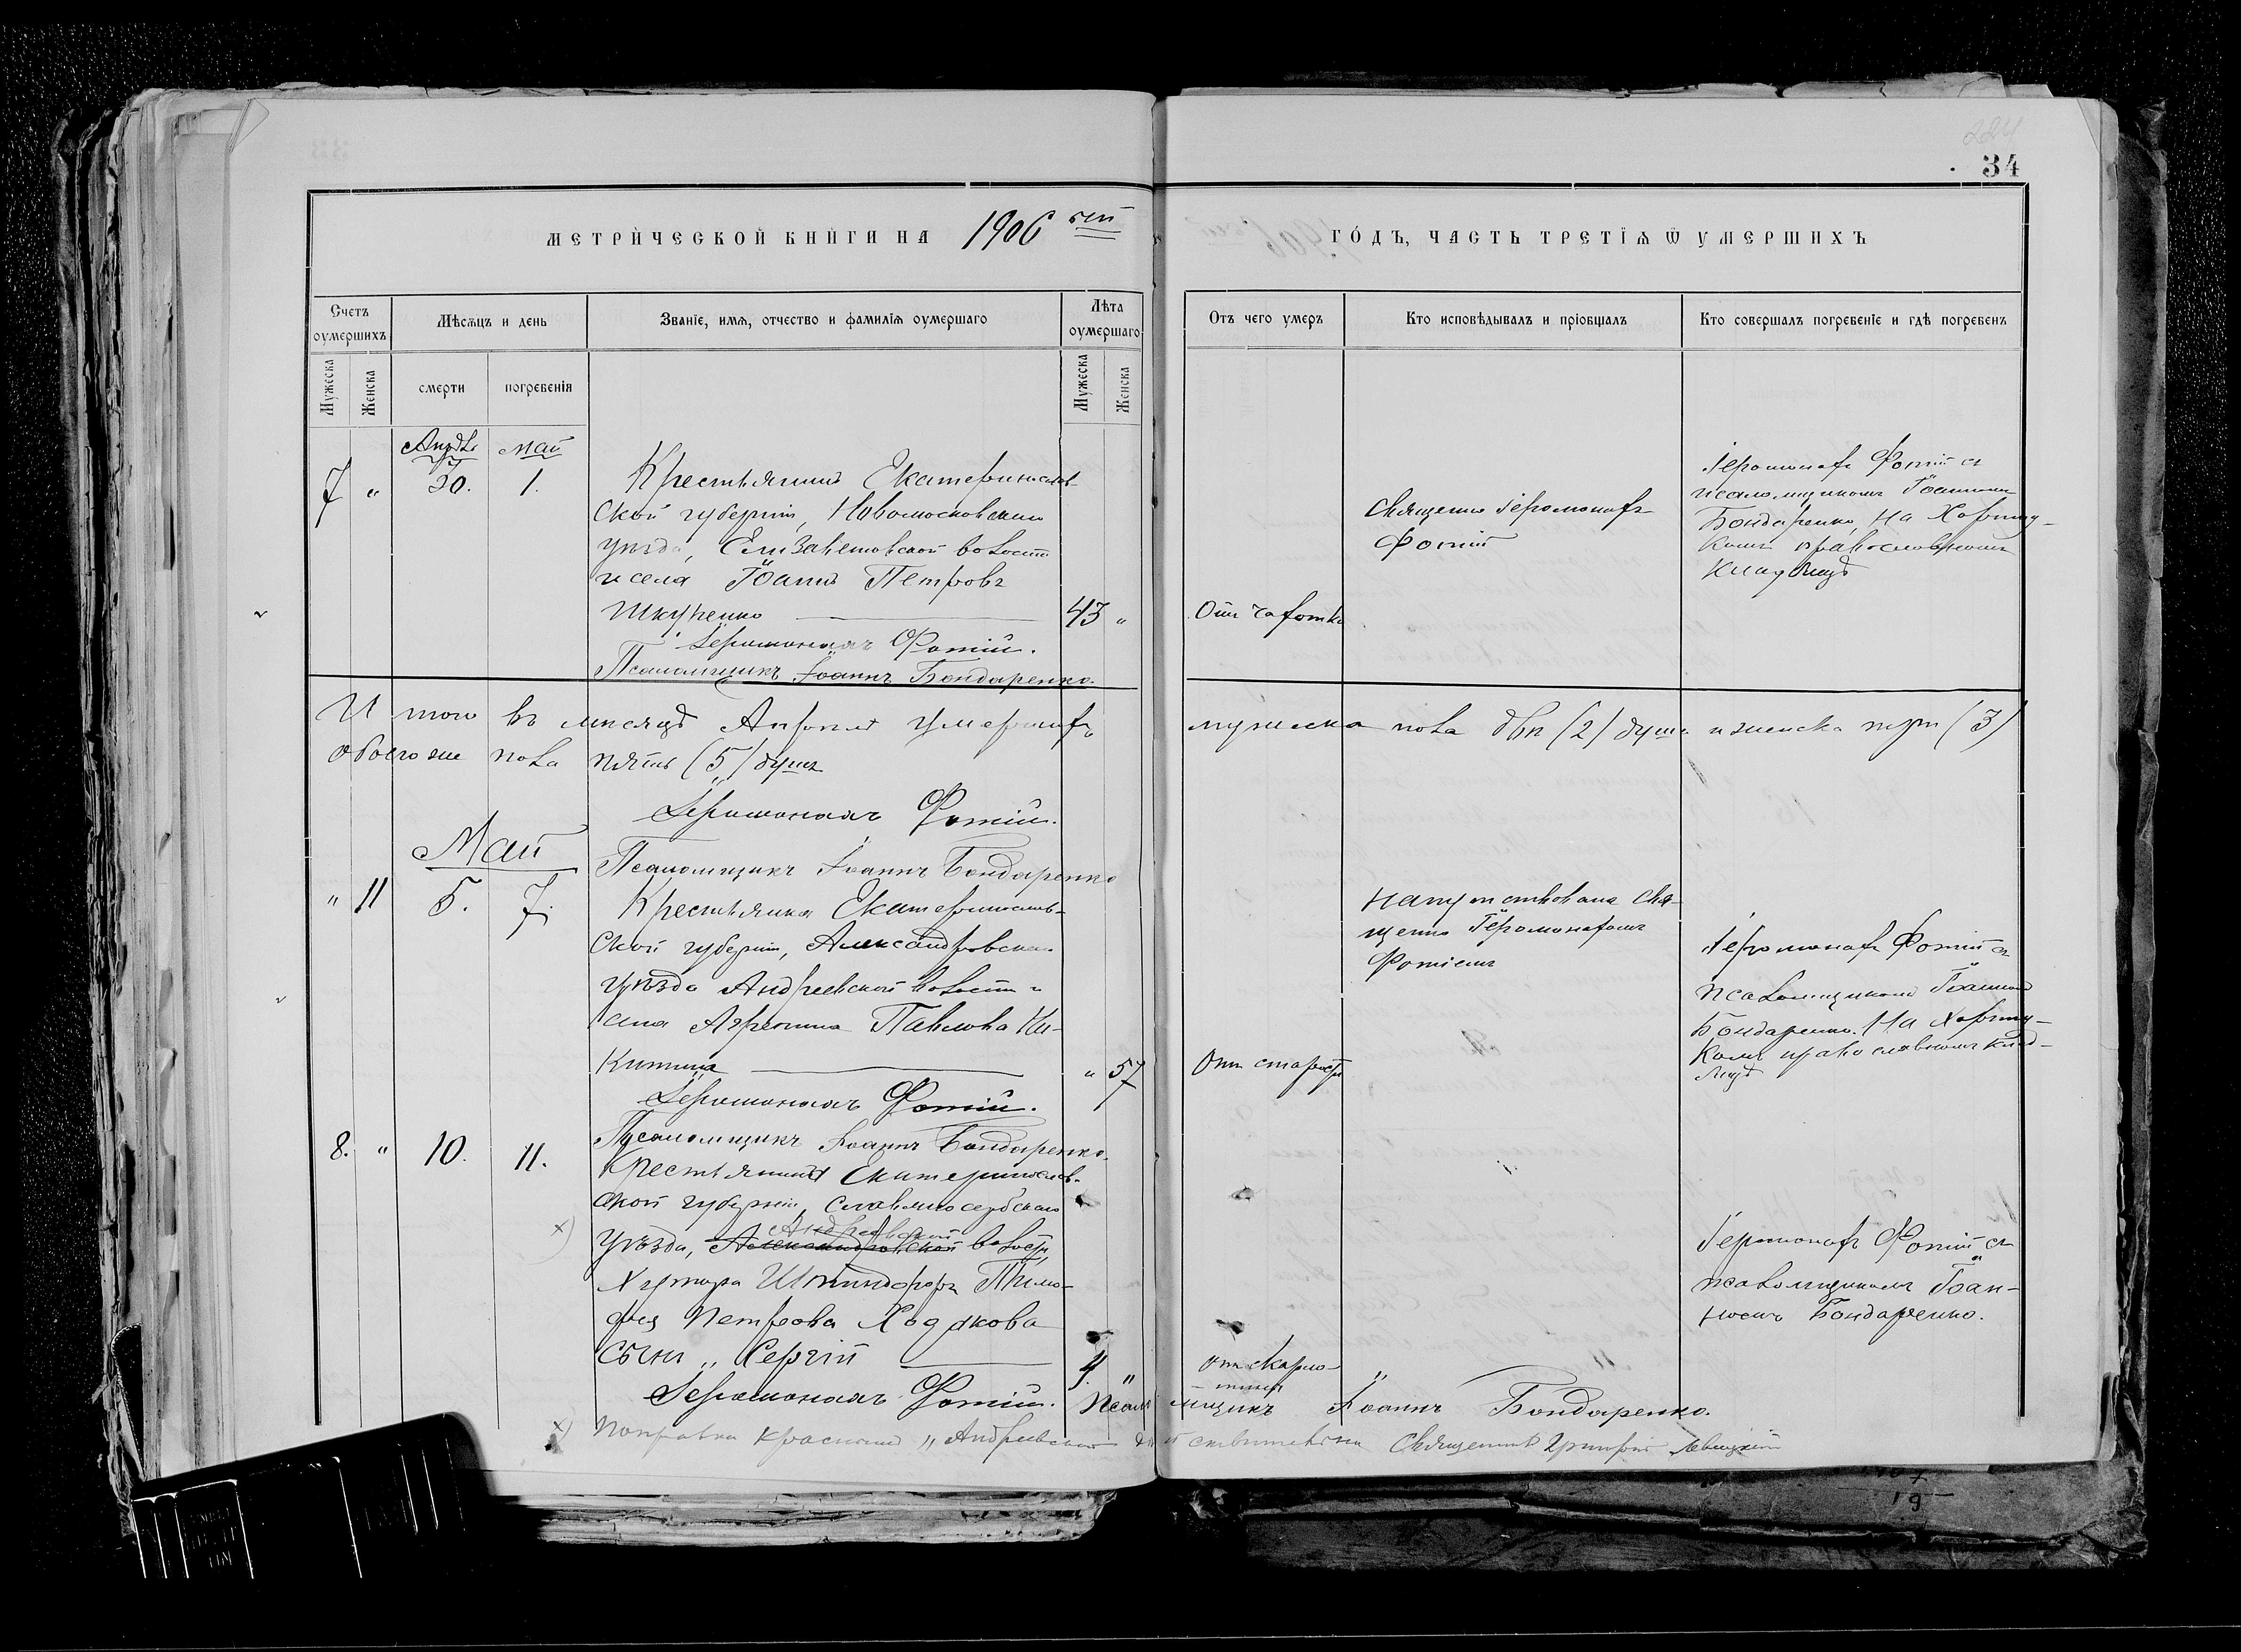 224
34
МЕТРИЧЕСКОЙ КНИГИ НА 1906 ой ГОДЪ, ЧАСТЬ ТРЕТІѦ Ѿ УМЕРШИХЪ
Счетъ оумершихъ
Мѣсѧцъ и день
Званіе, имѧ, отчество и фамиліѧ оумершаго
Лѣта оумершаго
Отъ чего умеръ
Кто исповѣдывалъ и пріобщалъ
Кто совершалъ погребеніе и гдѣ погребенъ
Мужеска
Женска
смерти
погребенія
Мужеска
Женска
Апрѣль
Май
7 " 30. 1.
Крестьянинъ Екатеринослав-
ской губерніи, Новомосковскаго
уѣзда, Елизаветовской волости
и села Іоаннъ Петровъ
Шкуренко 43 "
Іеромонахъ Фотій.
Псаломщикъ Іоаннъ Бондаренко.
Отъ чахотки
Священно Іеромонахъ
Фотій
Іеромонахъ Фотій съ
псаломщикомъ Іоанномъ
Бондаренко, на
православномъ
кладбищѣ
Итого въ мѣсяцѣ Апрѣлѣ умершихъ мужеска пола двѣ (2) души и женска три (3)
обоего же пола пять (5) душъ
Іеромонахъ Фотій.
Псаломщикъ Іоаннъ Бондаренко
Май
" 11 5. 7.
Крестьянка Екатеринослав-
ской губерніи, Александровскаго
уѣзда Андреевской волости и
села Агрепина Павлова Ни-
китина " 57
Іеромонахъ Фотій.
Псаломщикъ Іоаннъ Бондаренко.
Отъ старости
Напутствована Свя-
щенно Іеромонахомъ
Фотіемъ
Іеромонахъ Фотій съ
псаломщикомъ Іоанномъ
Бондаренко. На
православномъ клад-
бищѣ
8. " 10. 11.
Крестьянина Екатеринослав-
ской губерніи, Славяносербскаго
х) Андреевской
уѣзда, Александровской волости,
Хутора Тимо-
фея Петрова Ходакова
сынъ „Сергій 4. "
Іеромонахъ Фотій. Псаломщикъ Іоаннъ Бондаренко.
отъ скарла-
тины
"
Іеромонахъ Фотій съ
псаломщикомъ Іоан-
номъ Бондаренко.
х) Поправка красными „Андреевской" дѣйствительна Священникъ Григорій Левицкій
19